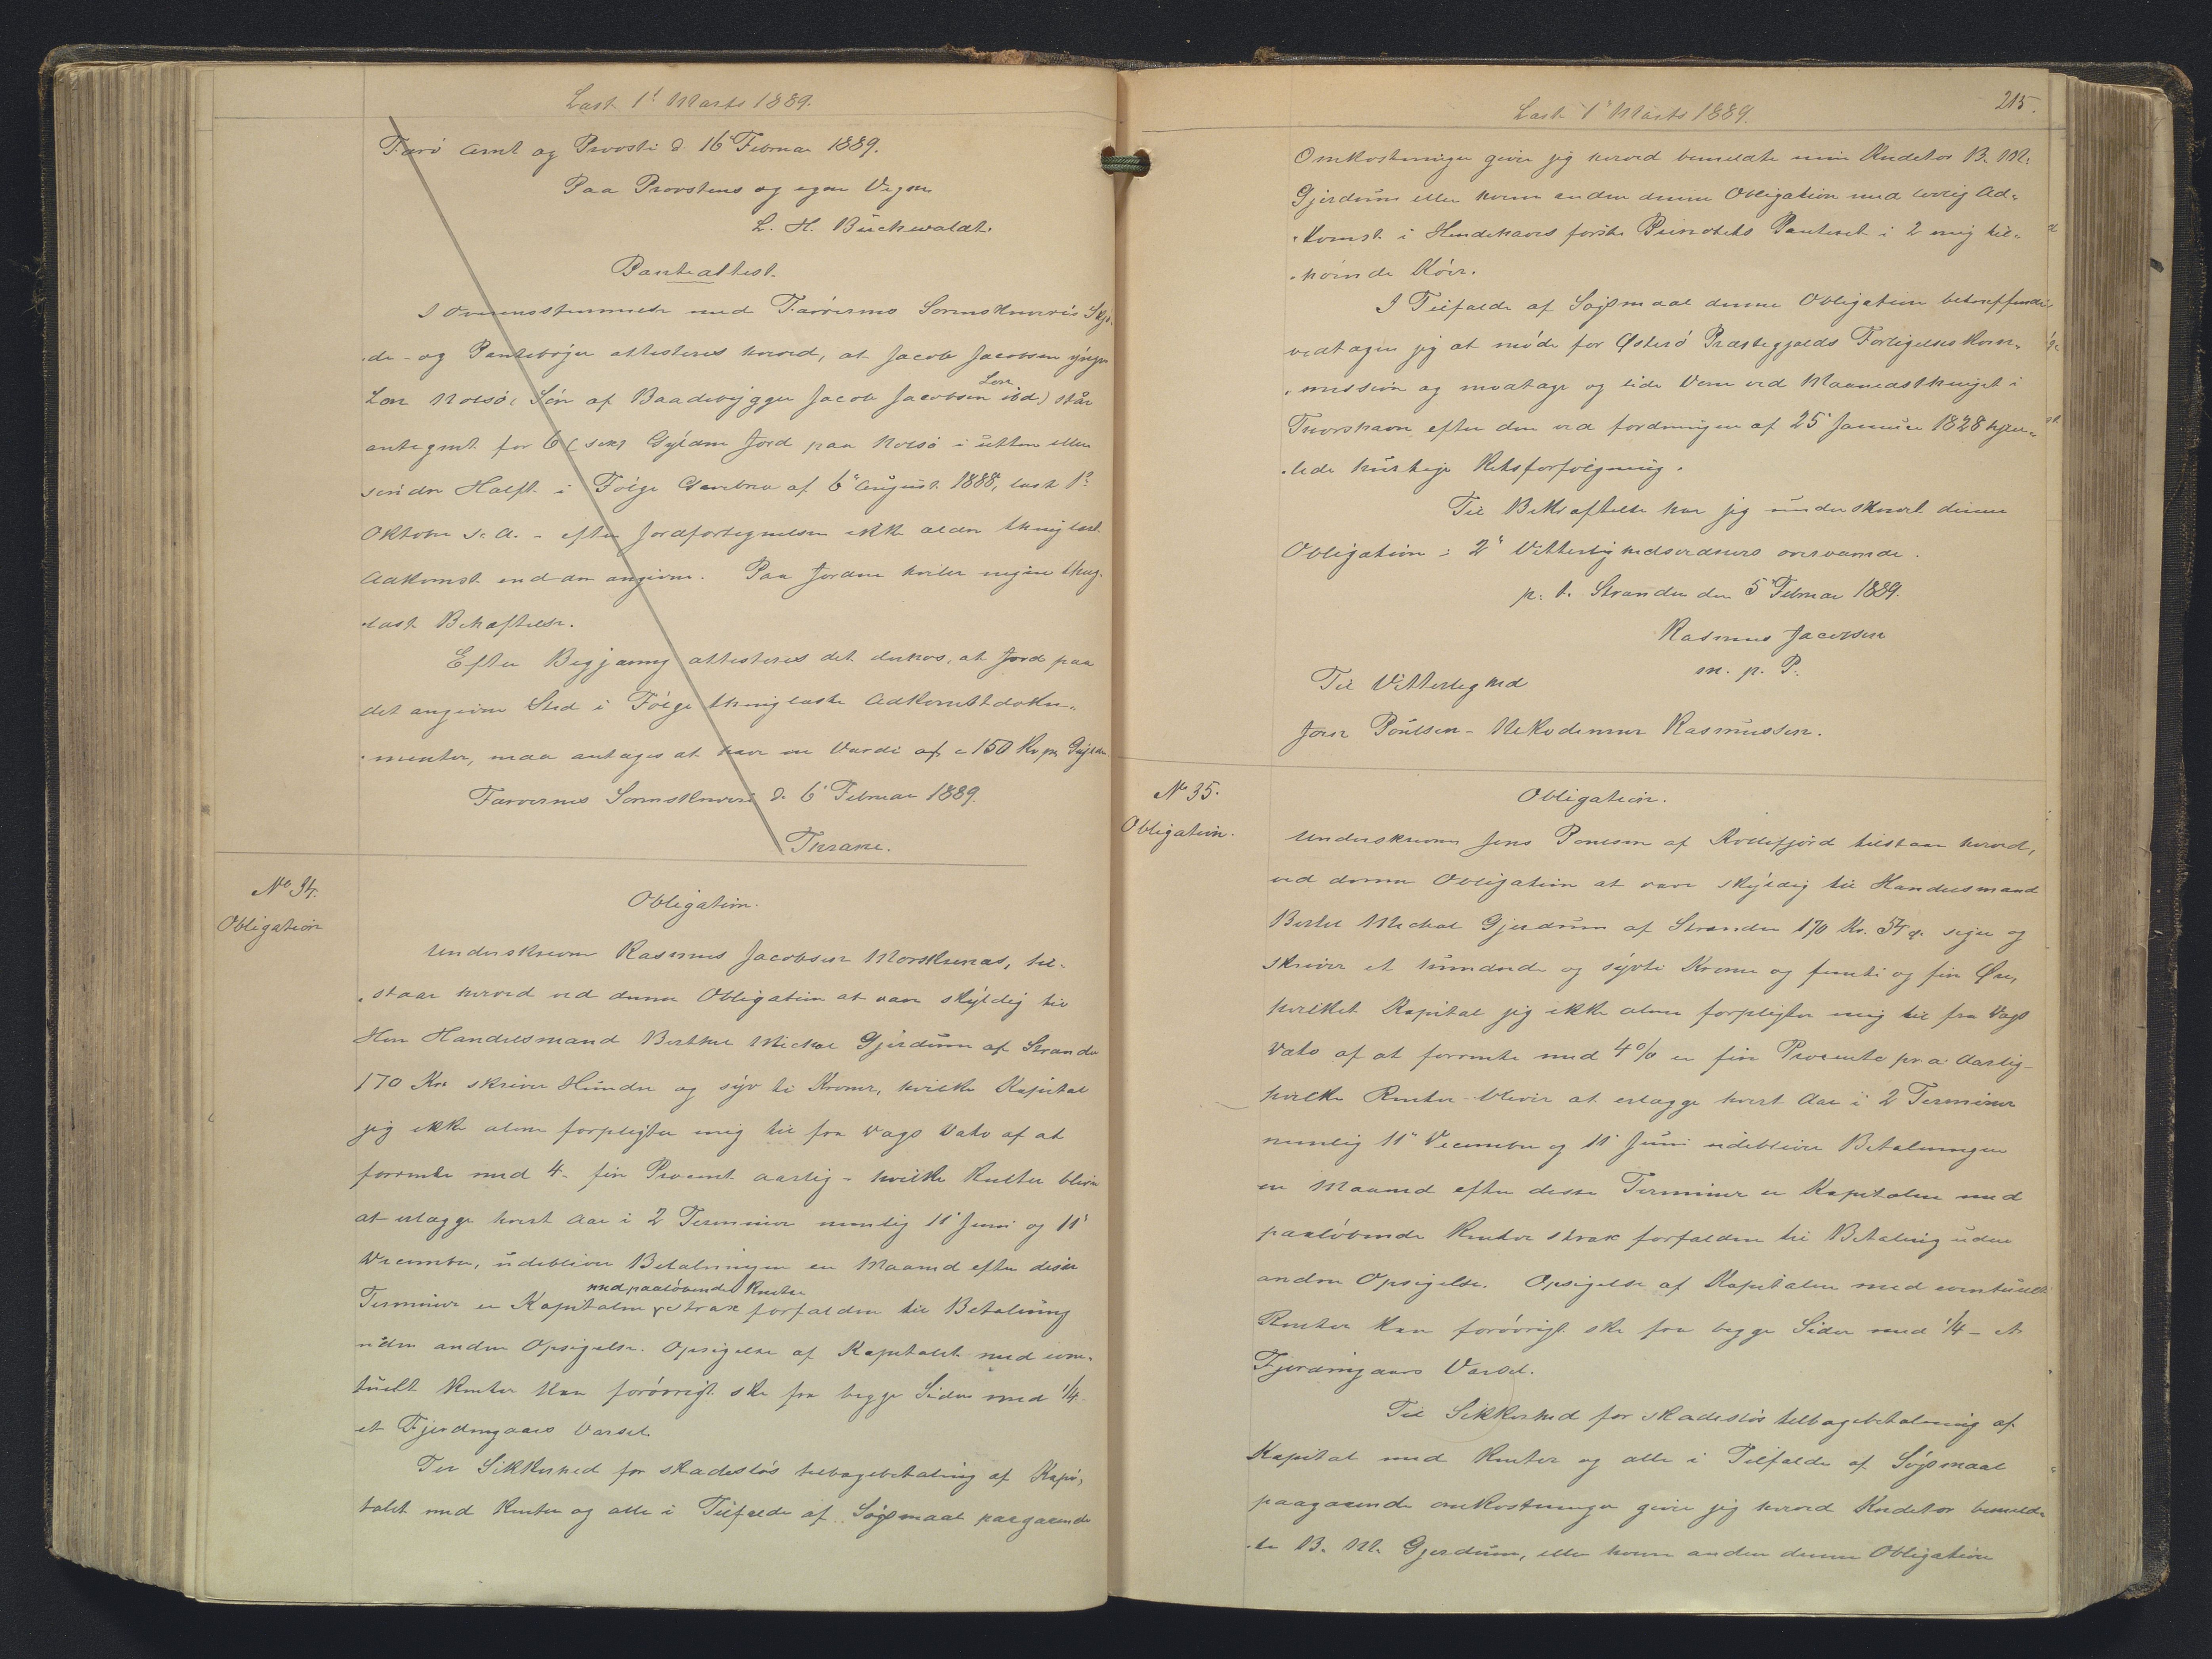 Læst 1' Marts 1889.
Færø Amt og Provsti d. 16' Februar 1889.
Paa Provstens og egne Vegne
L. H. Buchwaldt.
Panteattest.
I Overensstemmelse med Færøernes Sorenskriveris Skjø-
de- og Pantebøger attesteres herved, at Jacob Jacobsen yngre
Lon Nolsø (Søn af Baadebygger Jacob Jacobsen Lon ibd) står
antegnet for 6 (seks Gylden Jord paa Nolsø i
søndre Halft i Følge af 6' August 1888, læst 1'
Oktober s. A. - efter Jordfortegnelsen ikke ældre thinglæst
Adkomst end den angivne. Paa Jorden hviler ingen thing-
læst Behæftelse.
Efter Begjæring attesteres det derhos, at Jord paa
det angivne Sted i Følge thinglæste Adkomstdoku-
menter, maa antages at have en Værdi af c 150 Kr pr Gylden
Færøernes Sorenskriveri d. 6' Februar 1889.
Thrane.
No 34.
Obligation
Obligation.
Underskrevne Rasmus Jacobsen Morskranes, til-
staar herved ved denne Obligation at være skyldig til
Herr Handelsmand Berthel Michal Gjerdum af Strander
170 Kr skriver Hundre og syv ti Kroner, hvilke Kapital
jeg ikke alene forpligter mig til fra Dags Dato af at
forrente med 4 - fire Procent aarlig - hvilke Renter bliver
at erlægge hvert Aar i 2 Terminer nemlig 11' Juni og 11'
December, udebliver Betalningen en Maaned efter disse
Terminer er Kapitalen med paaløbende Renter strax forfalden til Betalning
uden anden Opsigelse. Opsigelse af Kapitalet med even-
tuelt Renter kan forøvrigt ske fra begge Sider med 1/4
et Fjerdingaars Varsel.
Til Sikkerhed for skadesløs tilbagebetaling af Kapi-
talet med Renter og alle i Tilfælde af Søgsmaal paagaaende
215.
Læst 1' Marts 1889.
Omkostninger giver jeg herved bemeldte min Kreditor B. M.
Gjerdum eller hvem anden denne Obligation med lovlig Ad-
komst i Hændehaves første Prioritets Panteret i 2 mig til-
hørende Køer.
I Tilfælde af Søgsmaal denne Obligation betræffende
vedtager jeg at møde for Østerø Præstegjælds Forligelses Kom-
mission og modtage og lide Dom ved Maanedsthinget i
Thorshavn efter den ved Fordningen af 25' Januar 1828 hjem-
lede hurtige Retsforfølgning.
Til Bekræftelse har jeg underskrevet denne
Obligation i 2' Vitterlighedsvidners overværelse.
p. t. Strander den 5' Februar 1889.
Rasmus Jacobsen
m. p. P.
Til Vitterlighed
Joen Poulsen - Nekodemus Rasmussen.
No 35.
Obligation.
Obligation.
Underskrevne Jens Poulsen af Kollefjord tilstaar herved,
ved denne Obligation at være skyldig til Handelsmand
Berthel Michal Gjerdum af Strander 170 Kr. 54 Ø. siger og
skriver et hundrede og syvti Kroner og femti og fire Øre,
hvilket Kapital jeg ikke alene forpligter mig til fra Dags
Dato af at forrente med 4% er fire Procento pr a: Aarlig -
hvilke Renter bliver at erlægge hvert Aar i 2 Terminer
nemlig 11' December og 11' Juni udebliver Betalningen
en Maaned efter disse Terminer er Kapitalen med
paaløbende Renter strax forfalden til Betaling uden
anden Opsigelse. Opsigelse af Kapitalen med eventuelt
Renter kan forøvrigt ske fra begge Sider med 1/4 - et
Fjerdingaars Varsel.
Til Sikkerhed for skadesløs tilbagebetalning af
Kapital med Renter og alle i Tilfælde af Søgsmaal
paagaaende omkostninger giver jeg herved Kreditor bemeld-
te B. M. Gjerdum, eller hvem anden denne Obligation